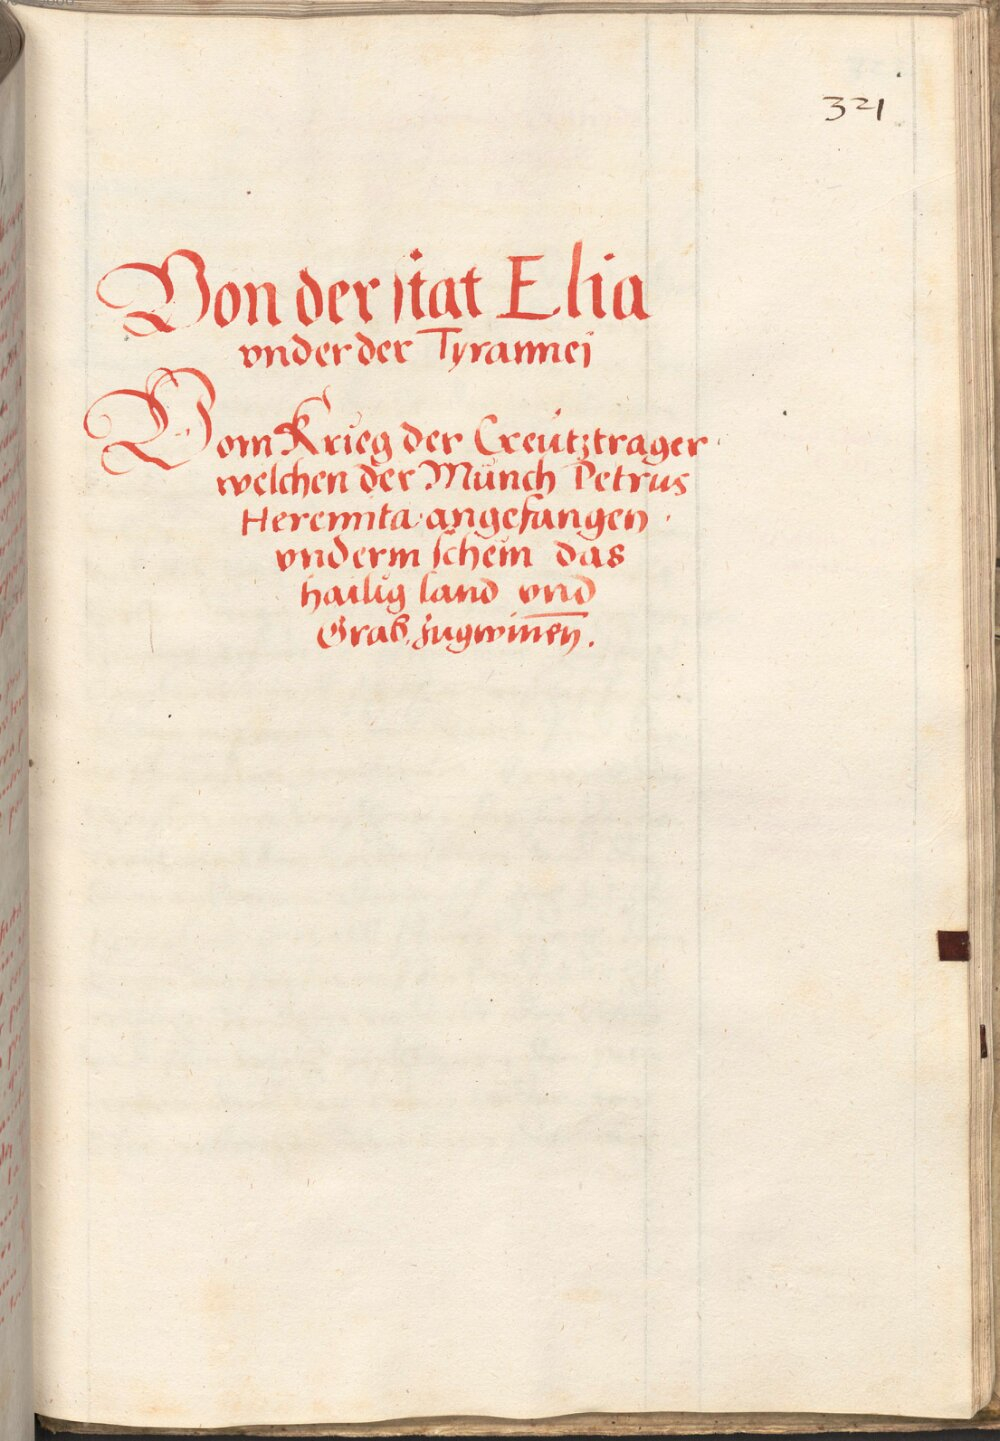 321
Von der stat Elia
vnder der Tyrannei
Vom Krieg der Creütztrager
welchen der Münch Petrus
Heremita angefangen
vnderm schein das
hailig land vnd
Grab zugwinen.